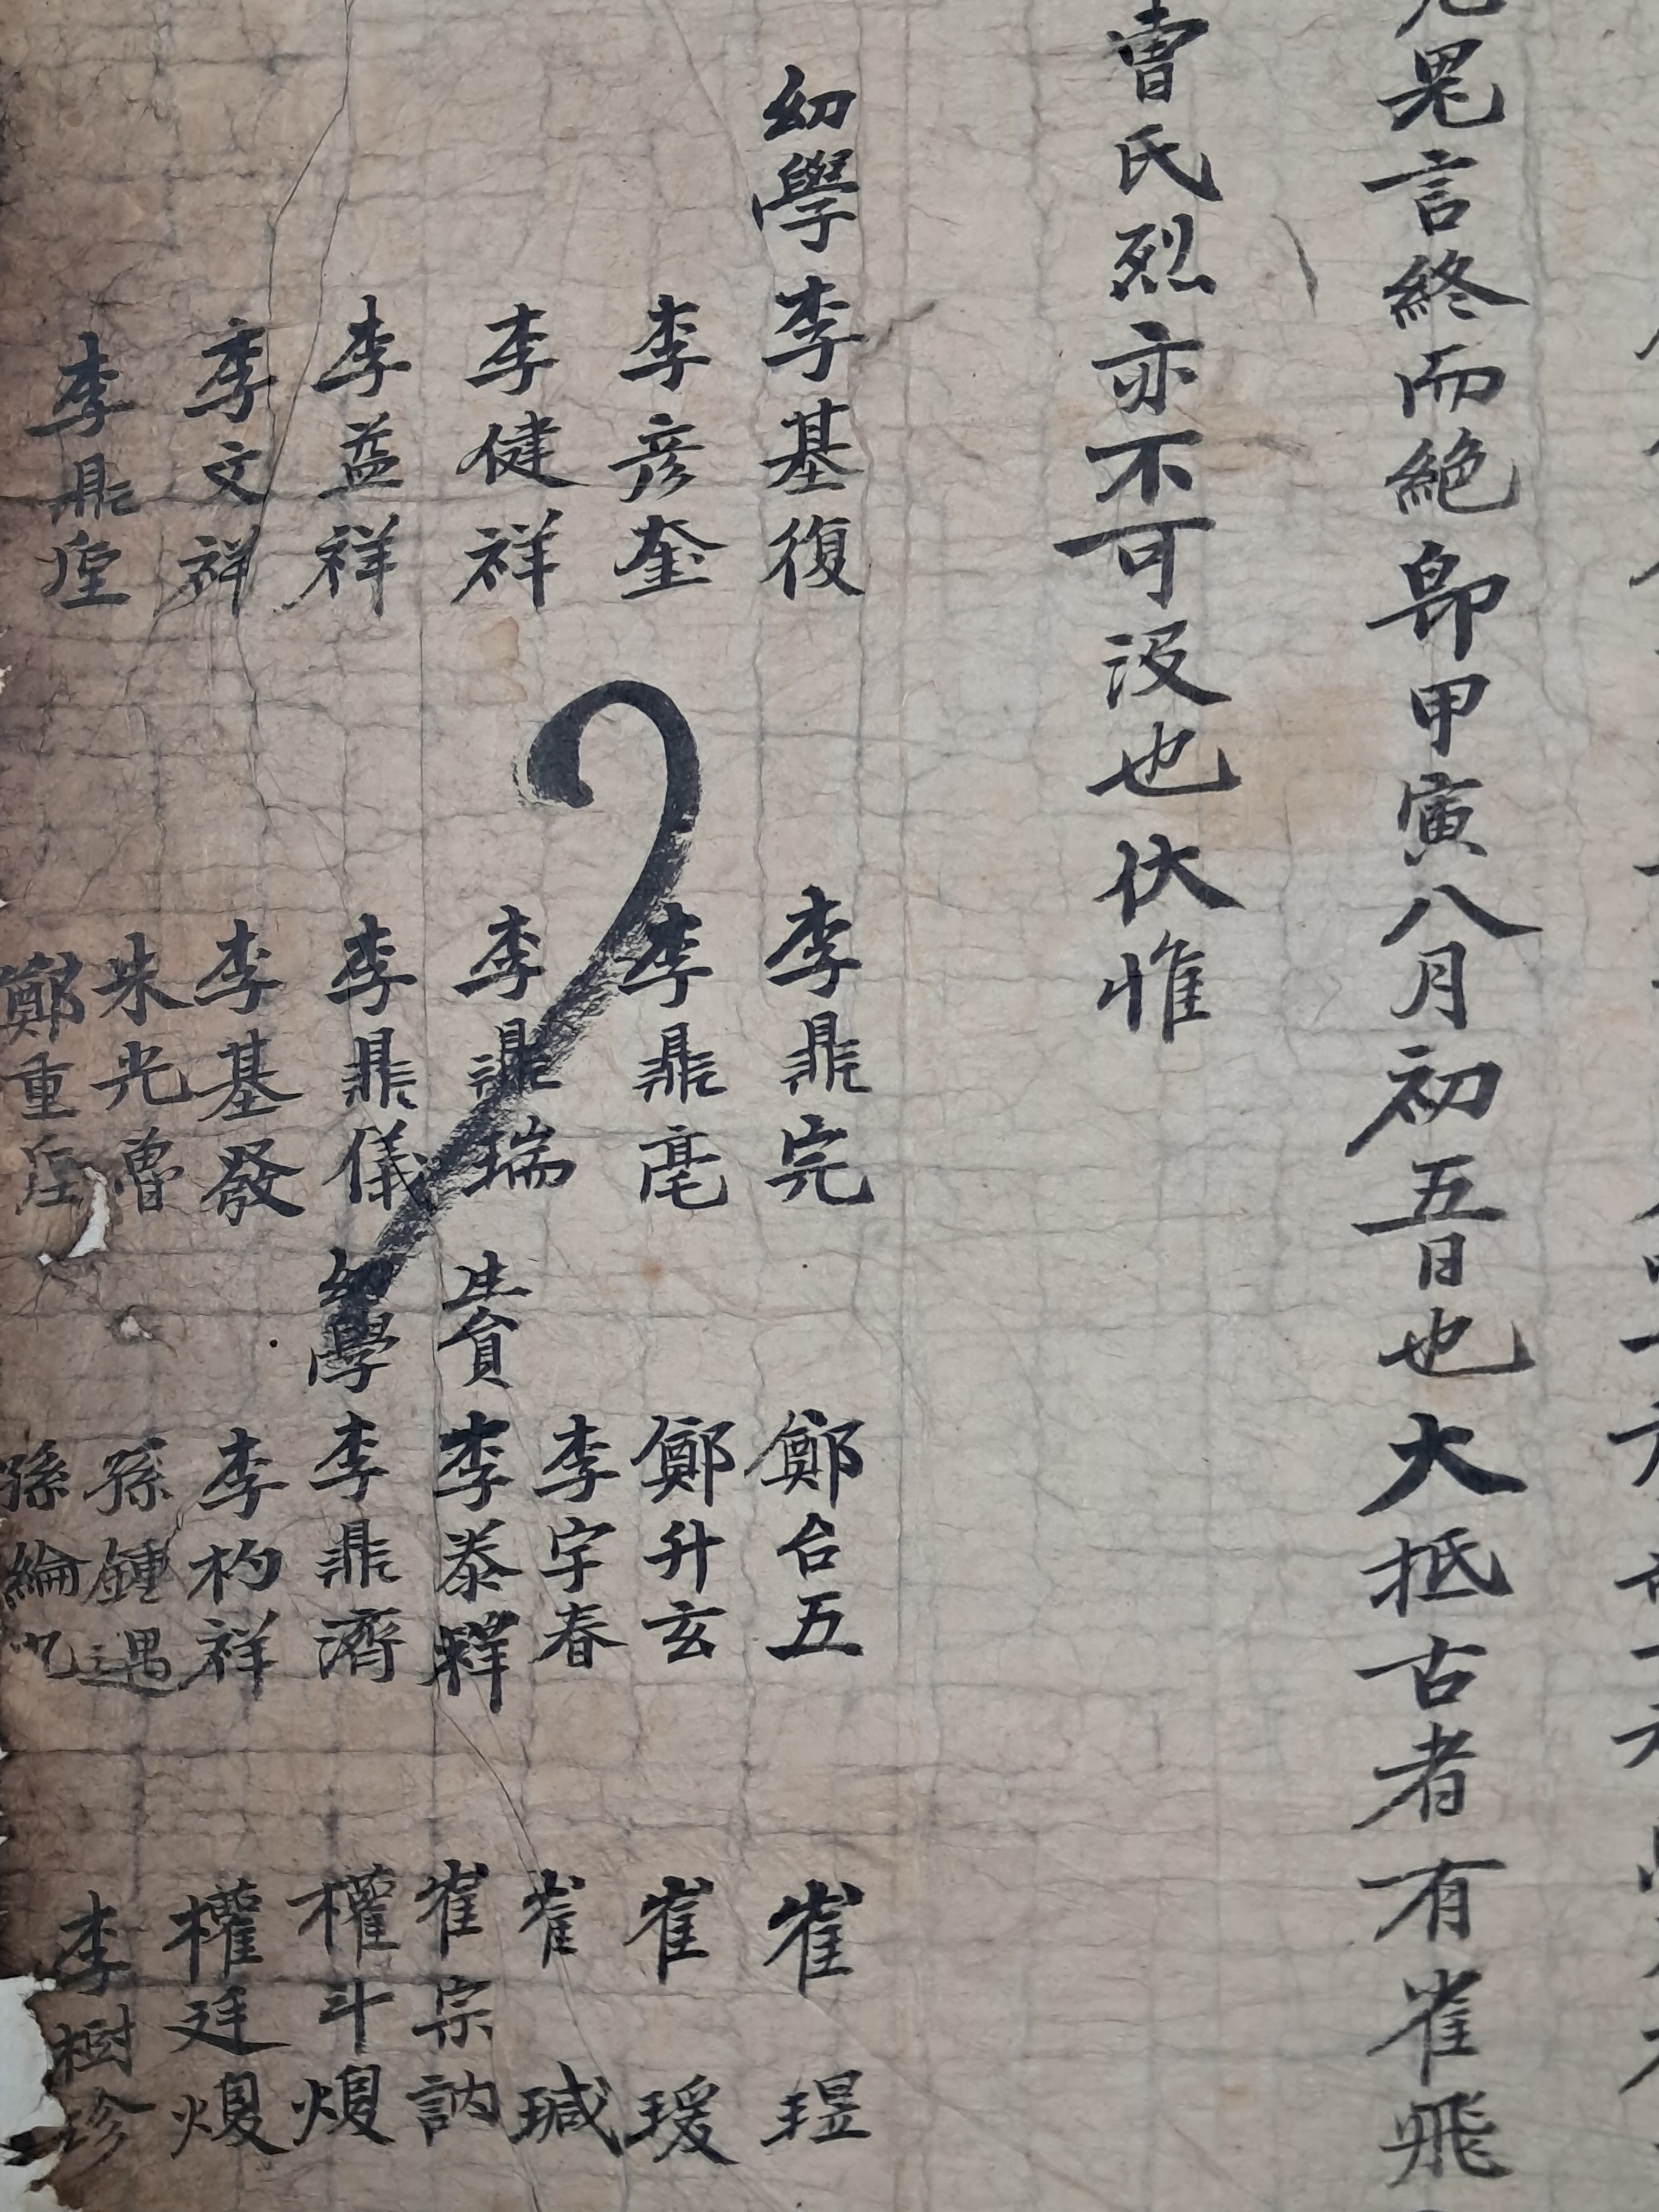 晃言終而絶卽甲寅八月初五日也大抵古者有雀飛
曺氏烈亦不可沒也伏惟
幼學李基復 李鼎完 鄭台五 崔 琞
李彦奎 李鼎亳 鄭升玄 崔 瑗
李健祥 李鼎瑞 李宇春 崔 瑊
生貟 李泰祥 崔宗訥
李益祥 李鼎儀 幼學 李鼎濟 權斗煚
李文祥 李基發 李杓祥 權廷煚
朱光魯 孫鍾遇
李鼎 鄭重 孫綸九 李樹珍